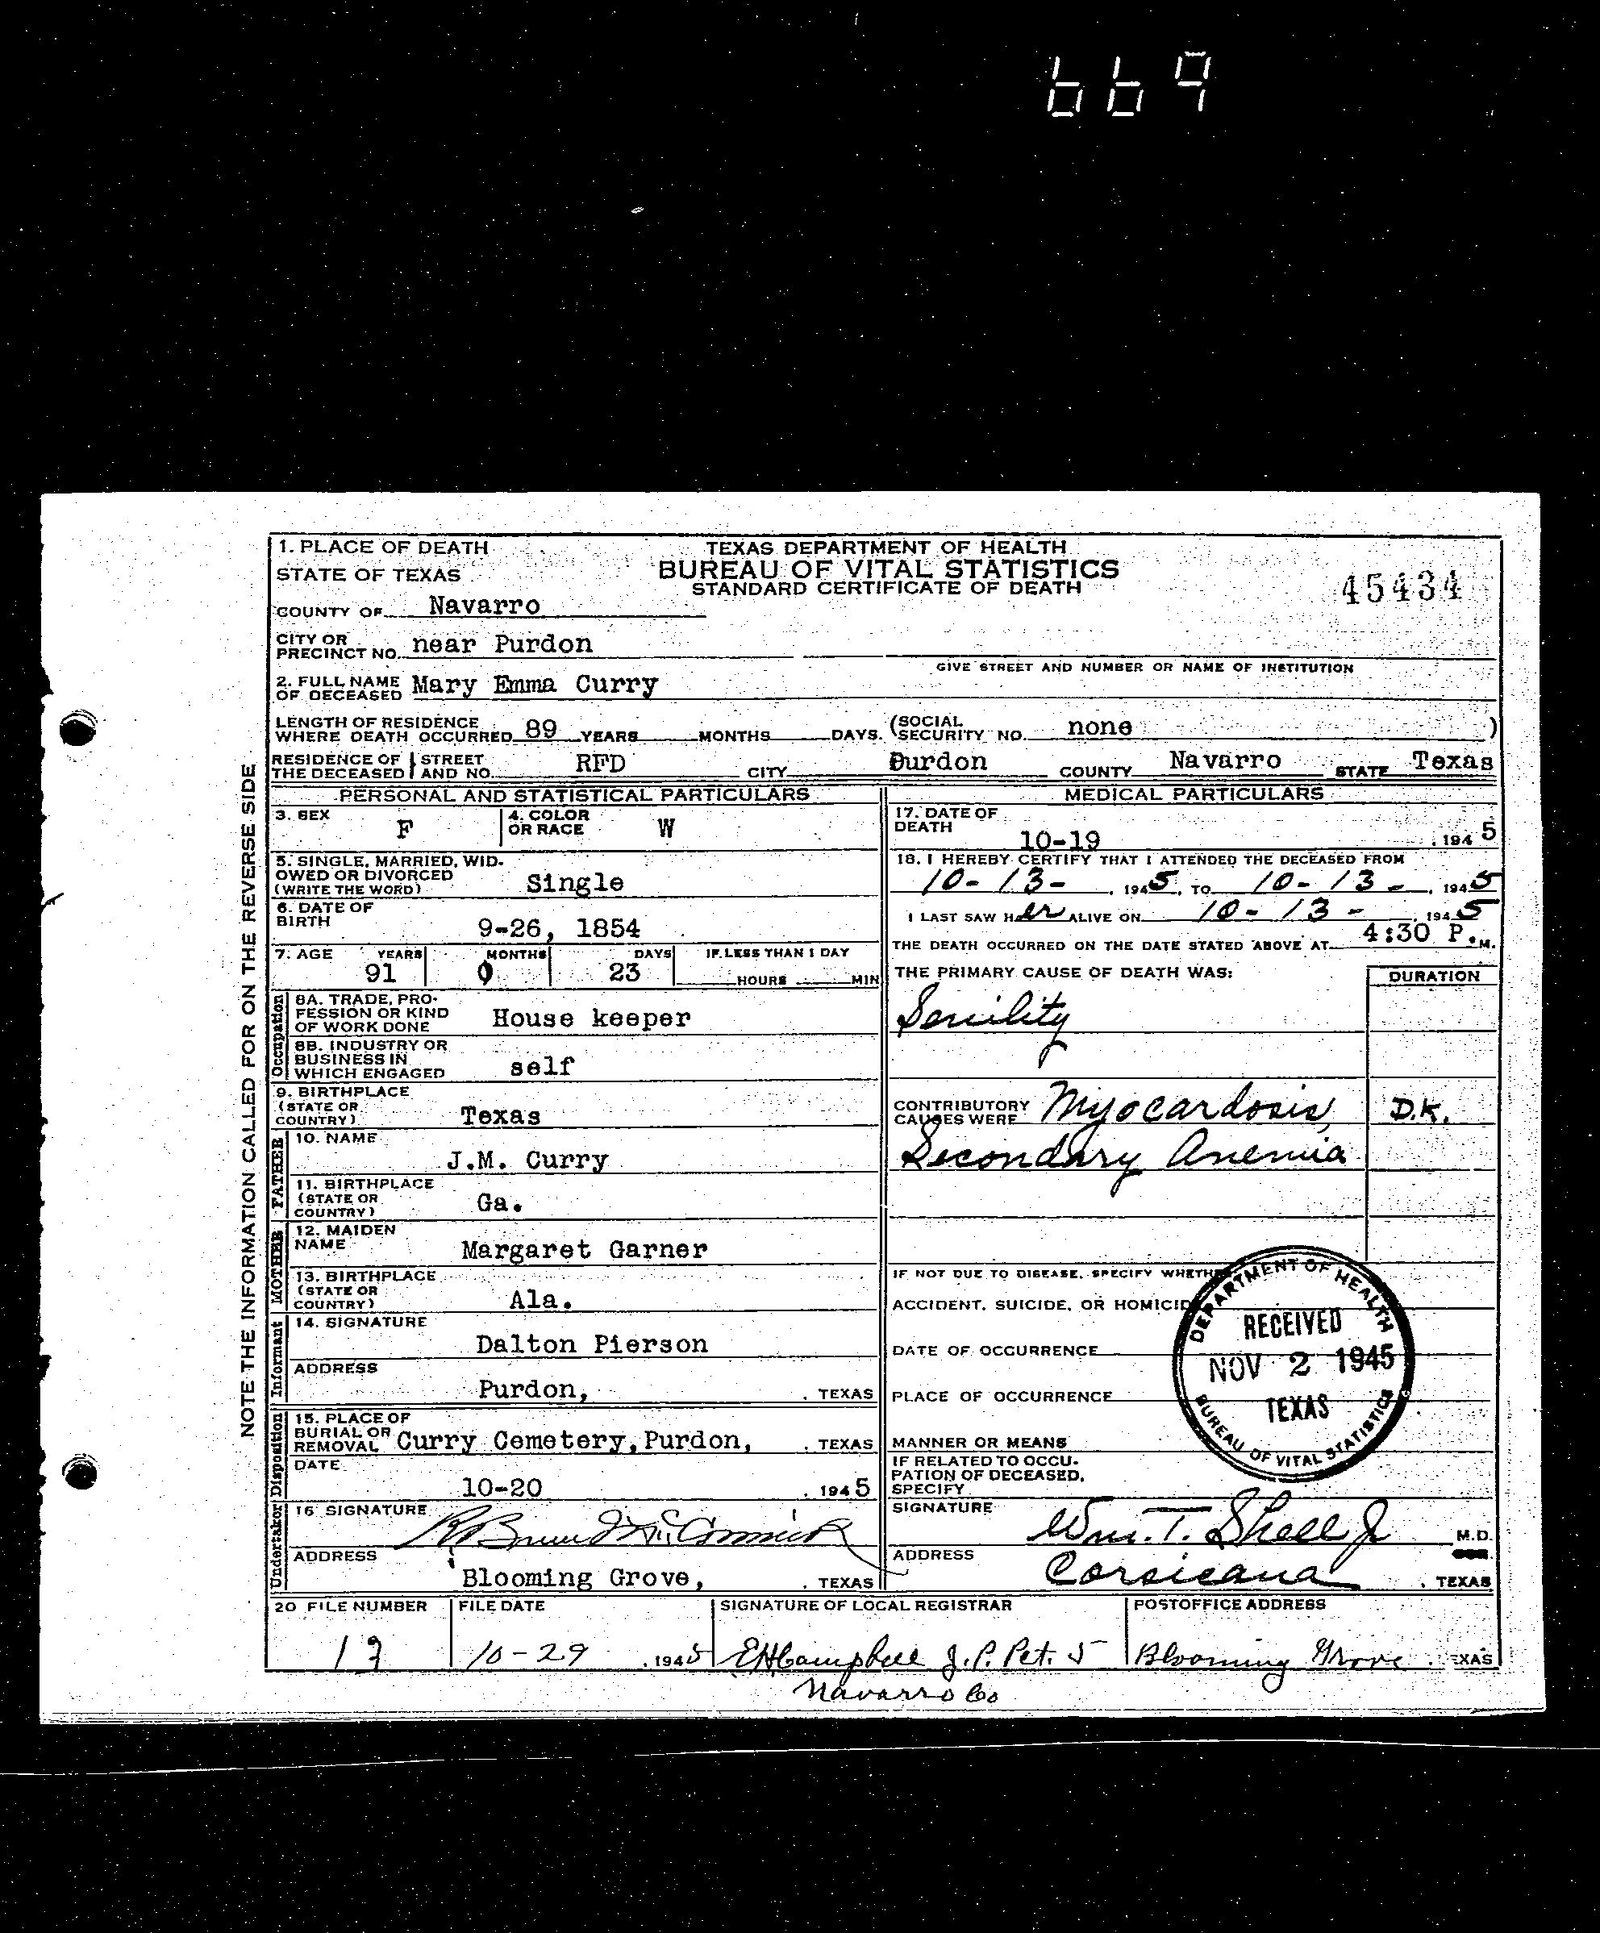 669
1. PLACE OF DEATH
STATE OF TEXAS
COUNTY OF Navarro
TEXAS DEPARTMENT OF HEALTH
BUREAU OF VITAL STATISTICS
STANDARD CERTIFICATE OF DEATH
45434
CITY OR
PRECINCT NO. near Purdon
GIVE STREET AND NUMBER OR NAME OF INSTITUTION
2. FULL NAME
OF DECEASED Mary Emma Curry
LENGTH OF RESIDENCE
WHERE DEATH OCCURRED 89 YEARS MONTHS DAYS. (SOCIAL
SECURITY NO. none )
RESIDENCE OF THE DECEASED STREET AND NO. RFD CITY Purdon COUNTY Navarro STATE Texas
NOTE THE INFORMATION CALLED FOR ON THE REVERSE SIDE
PERSONAL AND STATISTICAL PARTICULARS
3. SEX F 4. COLOR OR RACE W
5. SINGLE, MARRIED, WID-
OWED OR DIVORCED
(WRITE THE WORD) Single
6. DATE OF
BIRTH 9-26, 1854
7. AGE YEARS MONTHS DAYS IF LESS THAN 1 DAY
91 0 23 HOURS MIN
Occupation
8A. TRADE, PRO-
FESSION OR KIND
OF WORK DONE House keeper
8B. INDUSTRY OR
BUSINESS IN
WHICH ENGAGED self
9. BIRTHPLACE
(STATE OR
COUNTRY) Texas
FATHER
10. NAME
J.M. Curry
11. BIRTHPLACE
(STATE OR
COUNTRY) Ga.
MOTHER
12. MAIDEN
NAME Margaret Garner
13. BIRTHPLACE
(STATE OR
COUNTRY) Ala.
Informant
14. SIGNATURE
Dalton Pierson
ADDRESS
Purdon, , TEXAS
Disposition
15. PLACE OF
BURIAL OR
REMOVAL Curry Cemetery, Purdon, , TEXAS
DATE
10-20 , 1945
Undertaker
16 SIGNATURE
McCormick
ADDRESS
Blooming Grove, , TEXAS
MEDICAL PARTICULARS
17. DATE OF
DEATH 10-19 , 1945
18. I HEREBY CERTIFY THAT I ATTENDED THE DECEASED FROM
10-13- , 1945, TO 10-13- , 1945
I LAST SAW Her ALIVE ON 10-13- , 1945
THE DEATH OCCURRED ON THE DATE STATED ABOVE AT 4:30 P. M.
THE PRIMARY CAUSE OF DEATH WAS: DURATION
Senility
CONTRIBUTORY
CAUSES WERE Myocardosis, D.K.
Secondary Anemia
IF NOT DUE TO DISEASE, SPECIFY WHETH
ACCIDENT, SUICIDE, OR HOMICID
DATE OF OCCURRENCE
PLACE OF OCCURRENCE
MANNER OR MEANS
IF RELATED TO OCCU-
PATION OF DECEASED,
SPECIFY
DEPARTMENT OF HEALTH
RECEIVED
NOV 2 1945
TEXAS
BUREAU OF VITAL STATISTICS
SIGNATURE
Wm. T. Shell Jr M.D.
ADDRESS
Corsicana , TEXAS
20 FILE NUMBER FILE DATE SIGNATURE OF LOCAL REGISTRAR POSTOFFICE ADDRESS
10-29 , 1945 EHCampbell J.P. Pct. 5 Blooming Grove EXAS
Navarro Co